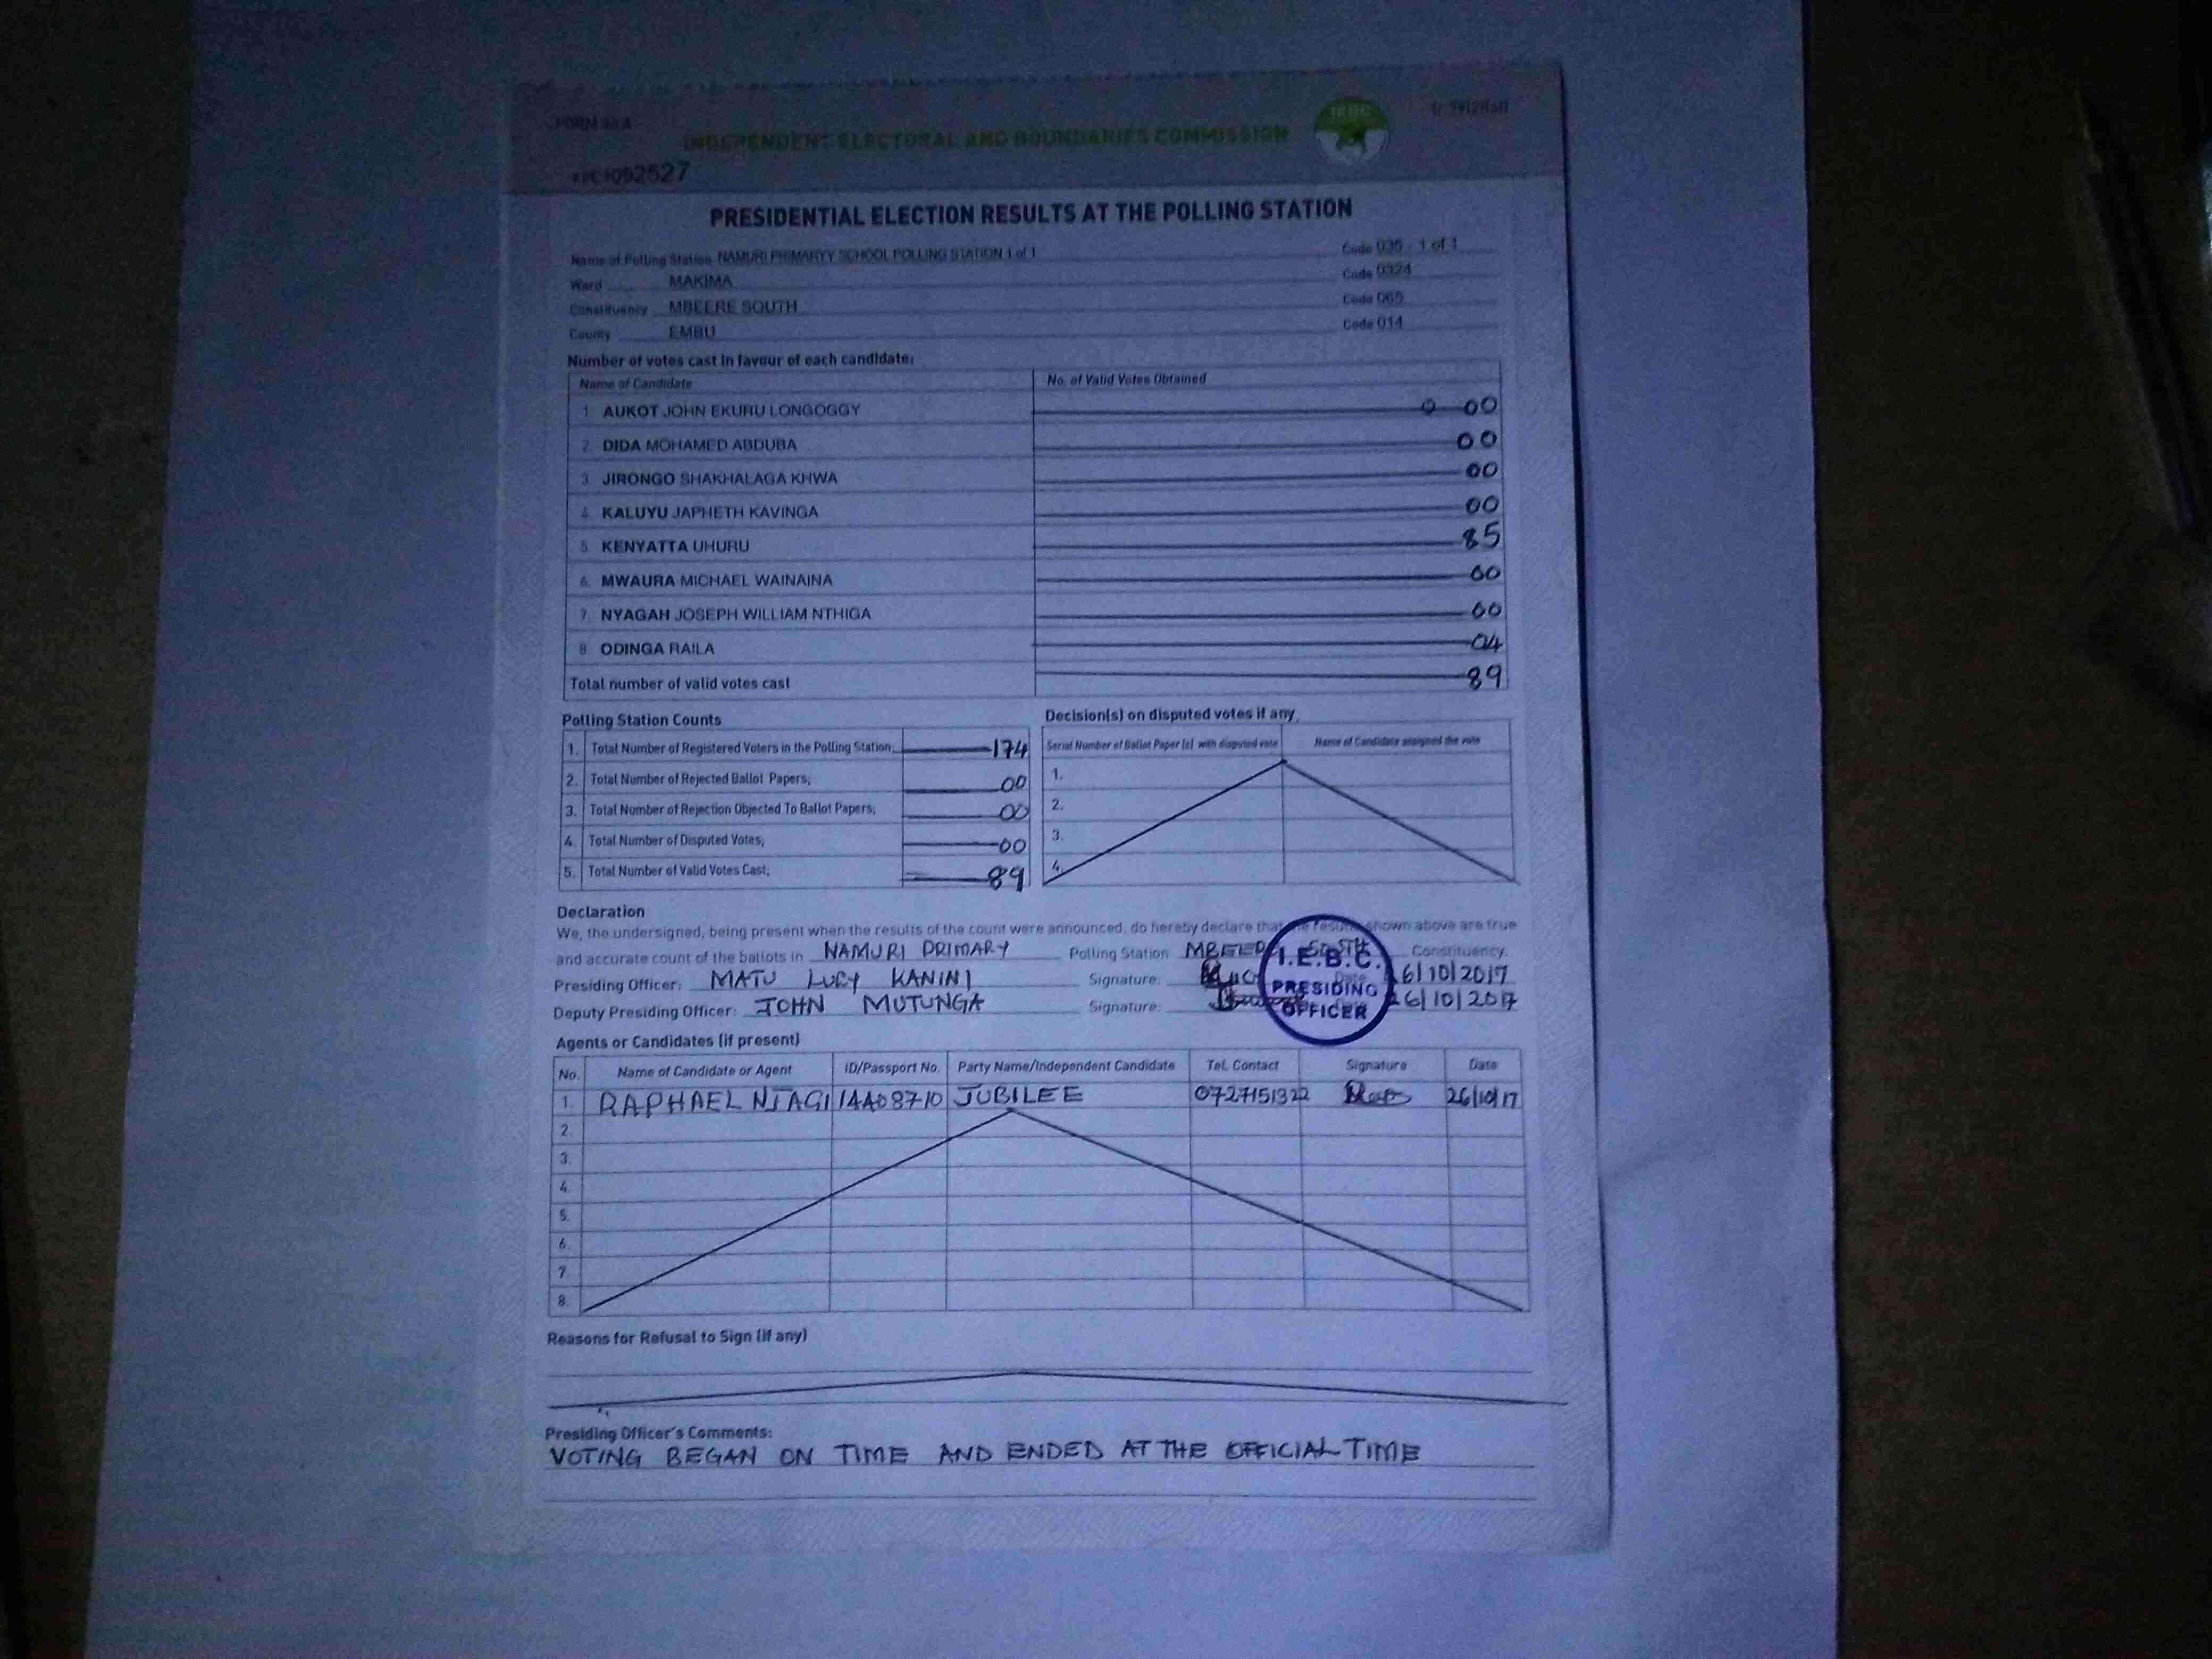 FORM 34 A
INDEPENDENT ELECTORAL AND BOUNDARIES COMMISSION
IEBC
PRESIDENTIAL ELECTION RESULTS AT THE POLLING STATION
Name of Polling Station NAMURI PRIMARYY SCHOOL POLLING STATION 1 of 1 Code 035 - 1 of 1
Ward MAKIMA Code 0324
Constituency MBEERE SOUTH Code 065
County EMBU Code 014
Number of votes cast in favour of each candidate:
Name of Candidate No. of Valid Votes Obtained
1 AUKOT JOHN EKURU LONGOGGY 0 00
2 DIDA MOHAMED ABDUBA 00
3. JIRONGO SHAKHALAGA KHWA 00
4 KALUYU JAPHETH KAVINGA 00
5 KENYATTA UHURU 85
6. MWAURA MICHAEL WAINAINA 00
7. NYAGAH JOSEPH WILLIAM NTHIGA 00
8 ODINGA RAILA 04
Total number of valid votes cast 89
Polling Station Counts
1. Total Number of Registered Voters in the Polling Station 174
2. Total Number of Rejected Ballot Papers; 00
3. Total Number of Rejection Objected To Ballot Papers; 00
4. Total Number of Disputed Votes; 00
5. Total Number of Valid Votes Cast; 89
Decision(s) on disputed votes if any
Serial Number of Ballot Paper (s) with disputed vote Name of Candidate assigned the vote
1.
2.
3.
4.
Declaration
We, the undersigned, being present when the results of the count were announced, do hereby declare that the results shown above are true
and accurate count of the ballots in NAMURI PRIMARY Polling Station MBEERE SOUTH Constituency.
Presiding Officer: MATU LUCY KANINI Signature: Date 26/10/2017
Deputy Presiding Officer: JOHN MUTUNGA Signature: 26/10/2017
I.E.B.C.
PRESIDING
OFFICER
Agents or Candidates (if present)
No. Name of Candidate or Agent ID/Passport No. Party Name/Independent Candidate Tel. Contact Signature Date
1. RAPHAEL NJAGI 14408710 JUBILEE 0727151322 26/10/17
2.
3.
4.
5.
6.
7.
8.
Reasons for Refusal to Sign (if any)
Presiding Officer's Comments:
VOTING BEGAN ON TIME AND ENDED AT THE OFFICIAL TIME